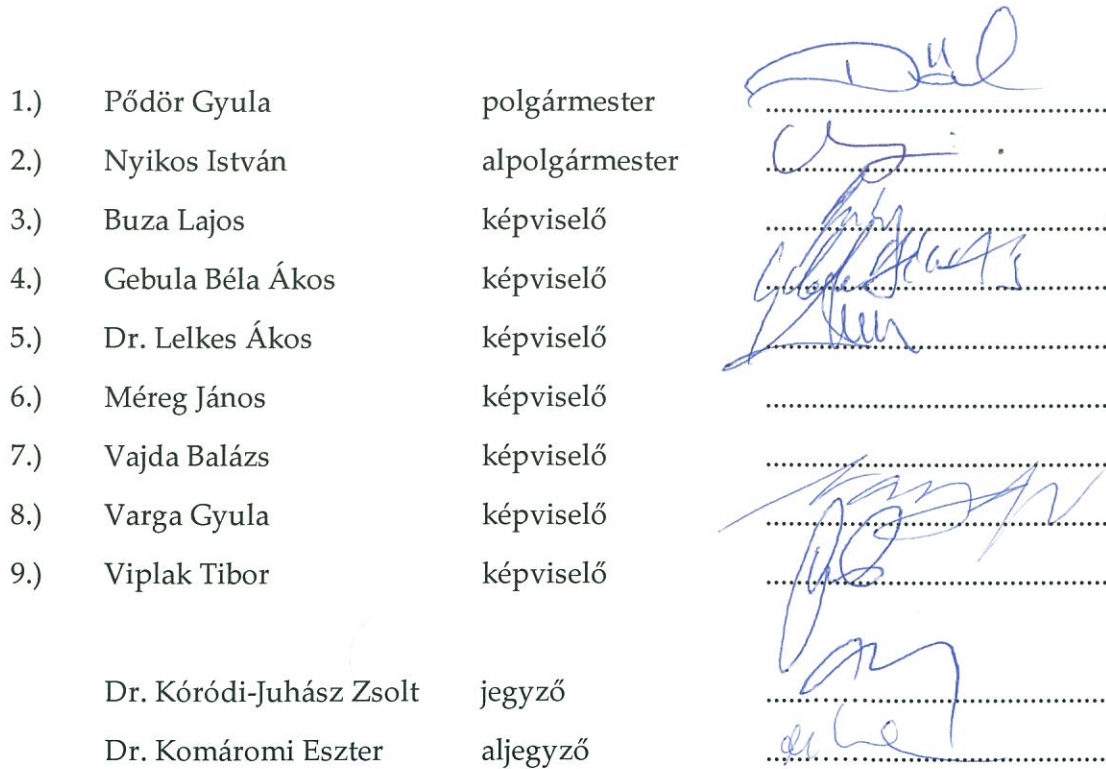 1.) Pődör Gyula polgármester ........................................
2.) Nyikos István alpolgármester ........................................
3.) Buza Lajos képviselő ........................................
4.) Gebula Béla Ákos képviselő ........................................
5.) Dr. Lelkes Ákos képviselő ........................................
6.) Méreg János képviselő ........................................
7.) Vajda Balázs képviselő ........................................
8.) Varga Gyula képviselő ........................................
9.) Viplak Tibor képviselő ........................................
Dr. Kóródi-Juhász Zsolt jegyző ........................................
Dr. Komáromi Eszter aljegyző ........................................